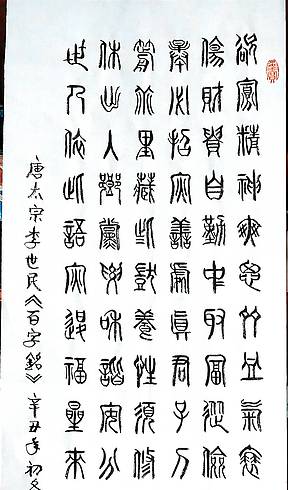 欲寡精神爽思多血氣衰
傷財貴自勤中取富從儉
暴必招災善處真君子刁
箭乖里藏些獃養性須修
休出入鄉黨要和諧安分
世人依此語災退福星來
唐太宗李世民《百字銘》辛丑年初